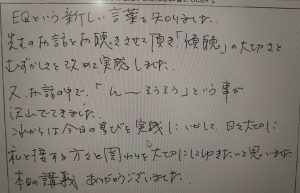 EQという新しい言葉を知りました。
先生のお話をお聴きさせて頂き「傾聴」の大切さと
むずかしさを改めて実践しました。
又、お話の中で、「ん〜そうそう」という事が
沢山でてきました。
これからは今日の学びを実践にいかして、日々大切に
私と接する方との関わりを大切にしてゆきたいと思いました。
本日の講義ありがとうございました。